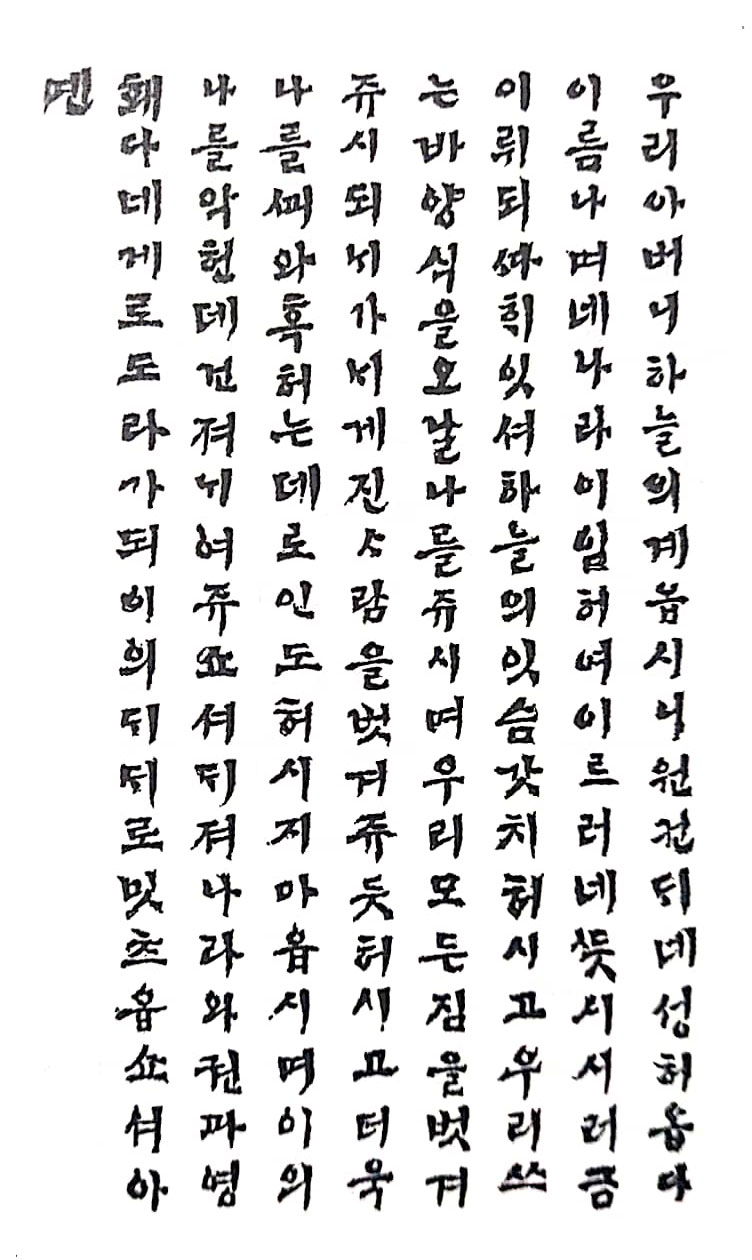 우리아버니하늘의계놉시니원컨ᄃᆡ네성허옵다
이름나며네나라이임허여이르러네ᄯᅳᆺ시시러금
이뤼되ᄯᅡ희잇셔하늘의잇슴갓치허시고우리쓰
는바양식을오날나를쥬시며우리모든짐을벗겨
쥬시되ᄂᆡ가ᄂᆡ게진ᄉᆞ람을벗겨쥬듯허시고더욱
나를ᄭᅬ와혹허는데로인도허시지마옵시며이의
나를악헌데건져ᄂᆡ여쥬쇼셔ᄃᆡ져나라와권과영
홰다네게로도라가되이의ᄃᆡᄃᆡ로밋츠옵쇼셔아
멘